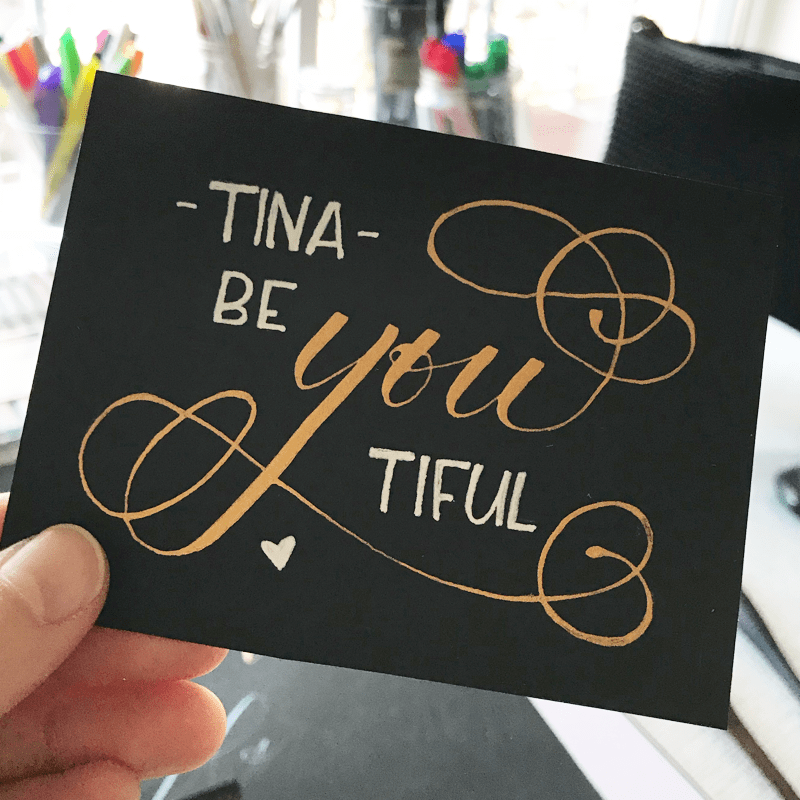 -TINA-
BE
you
TIFUL